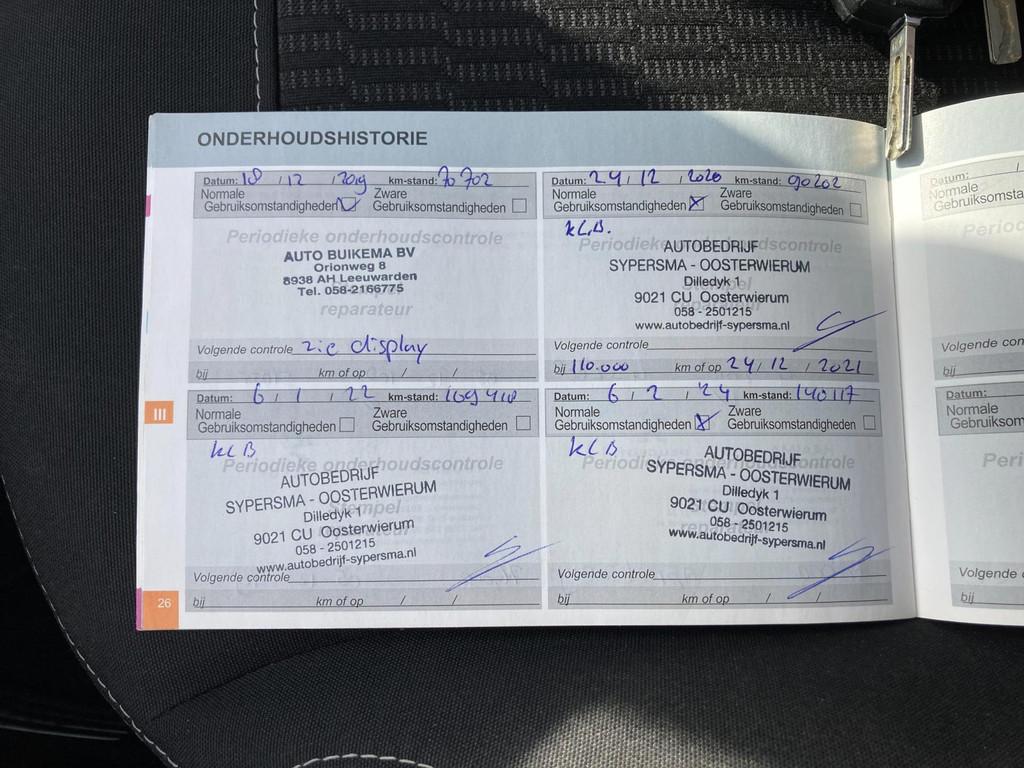 ONDERHOUDSHISTORIE
Datum: 18 / 12 / 2019 km-stand: 70702
Normale Zware
Gebruiksomstandigheden Gebruiksomstandigheden
Periodieke onderhoudscontrole
AUTO BUIKEMA BV
Orionweg 8
8938 AH Leeuwarden
Tel. 058-2166775
reparateur
Volgende controle zie display
bij km of op / /
Datum: 24 / 12 / 2020 km-stand: 90202
Normale Zware
Gebruiksomstandigheden Gebruiksomstandigheden
KLB.
Periodieke onderhoudscontrole
AUTOBEDRIJF
SYPERSMA - OOSTERWIERUM
Dilledyk 1
9021 CU Oosterwierum
058 - 2501215
www.autobedrijf-sypersma.nl
Volgende controle
bij 110.000 km of op 24 / 12 / 2021
III
Datum: 6 / 1 / 22 km-stand: 109418
Normale Zware
Gebruiksomstandigheden Gebruiksomstandigheden
KLB
Periodieke onderhoudscontrole
AUTOBEDRIJF
SYPERSMA - OOSTERWIERUM
Stempel
Dilledyk 1
9021 CU Oosterwierum
058 - 2501215
www.autobedrijf-sypersma.nl
Volgende controle
bij km of op / /
Datum: 6 / 2 / 24 km-stand: 140117
Normale Zware
Gebruiksomstandigheden Gebruiksomstandigheden
KLB
AUTOBEDRIJF
SYPERSMA - OOSTERWIERUM
Dilledyk 1
9021 CU Oosterwierum
058 - 2501215
www.autobedrijf-sypersma.nl
Volgende controle
bij km of op / /
26
Datum:
Normale
Gebruiksomsta
Period
Volgende con
bij
Datum:
Normale
Gebruiksom
Peri
Volgende
bij